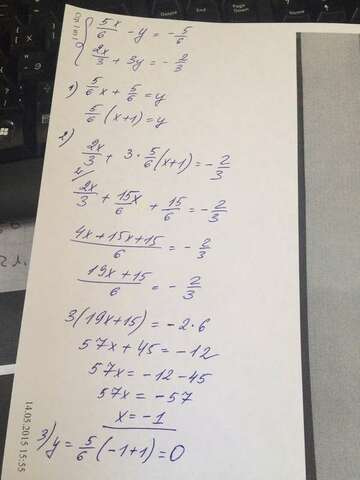 5x/6 - y = -5/6
2x/3 + 3y = -2/3
1) 5/6 x + 5/6 = y
5/6 (x+1) = y
2) 2x/3 + 3 · 5/6 (x+1) = -2/3
2x/3 + 15x/6 + 15/6 = -2/3
4x+15x+15/6 = -2/3
19x+15/6 = -2/3
3(19x+15) = -2·6
57x + 45 = -12
57x = -12-45
57x = -57
x = -1
3) y = 5/6 (-1+1) = 0
14.05.2015 15:55